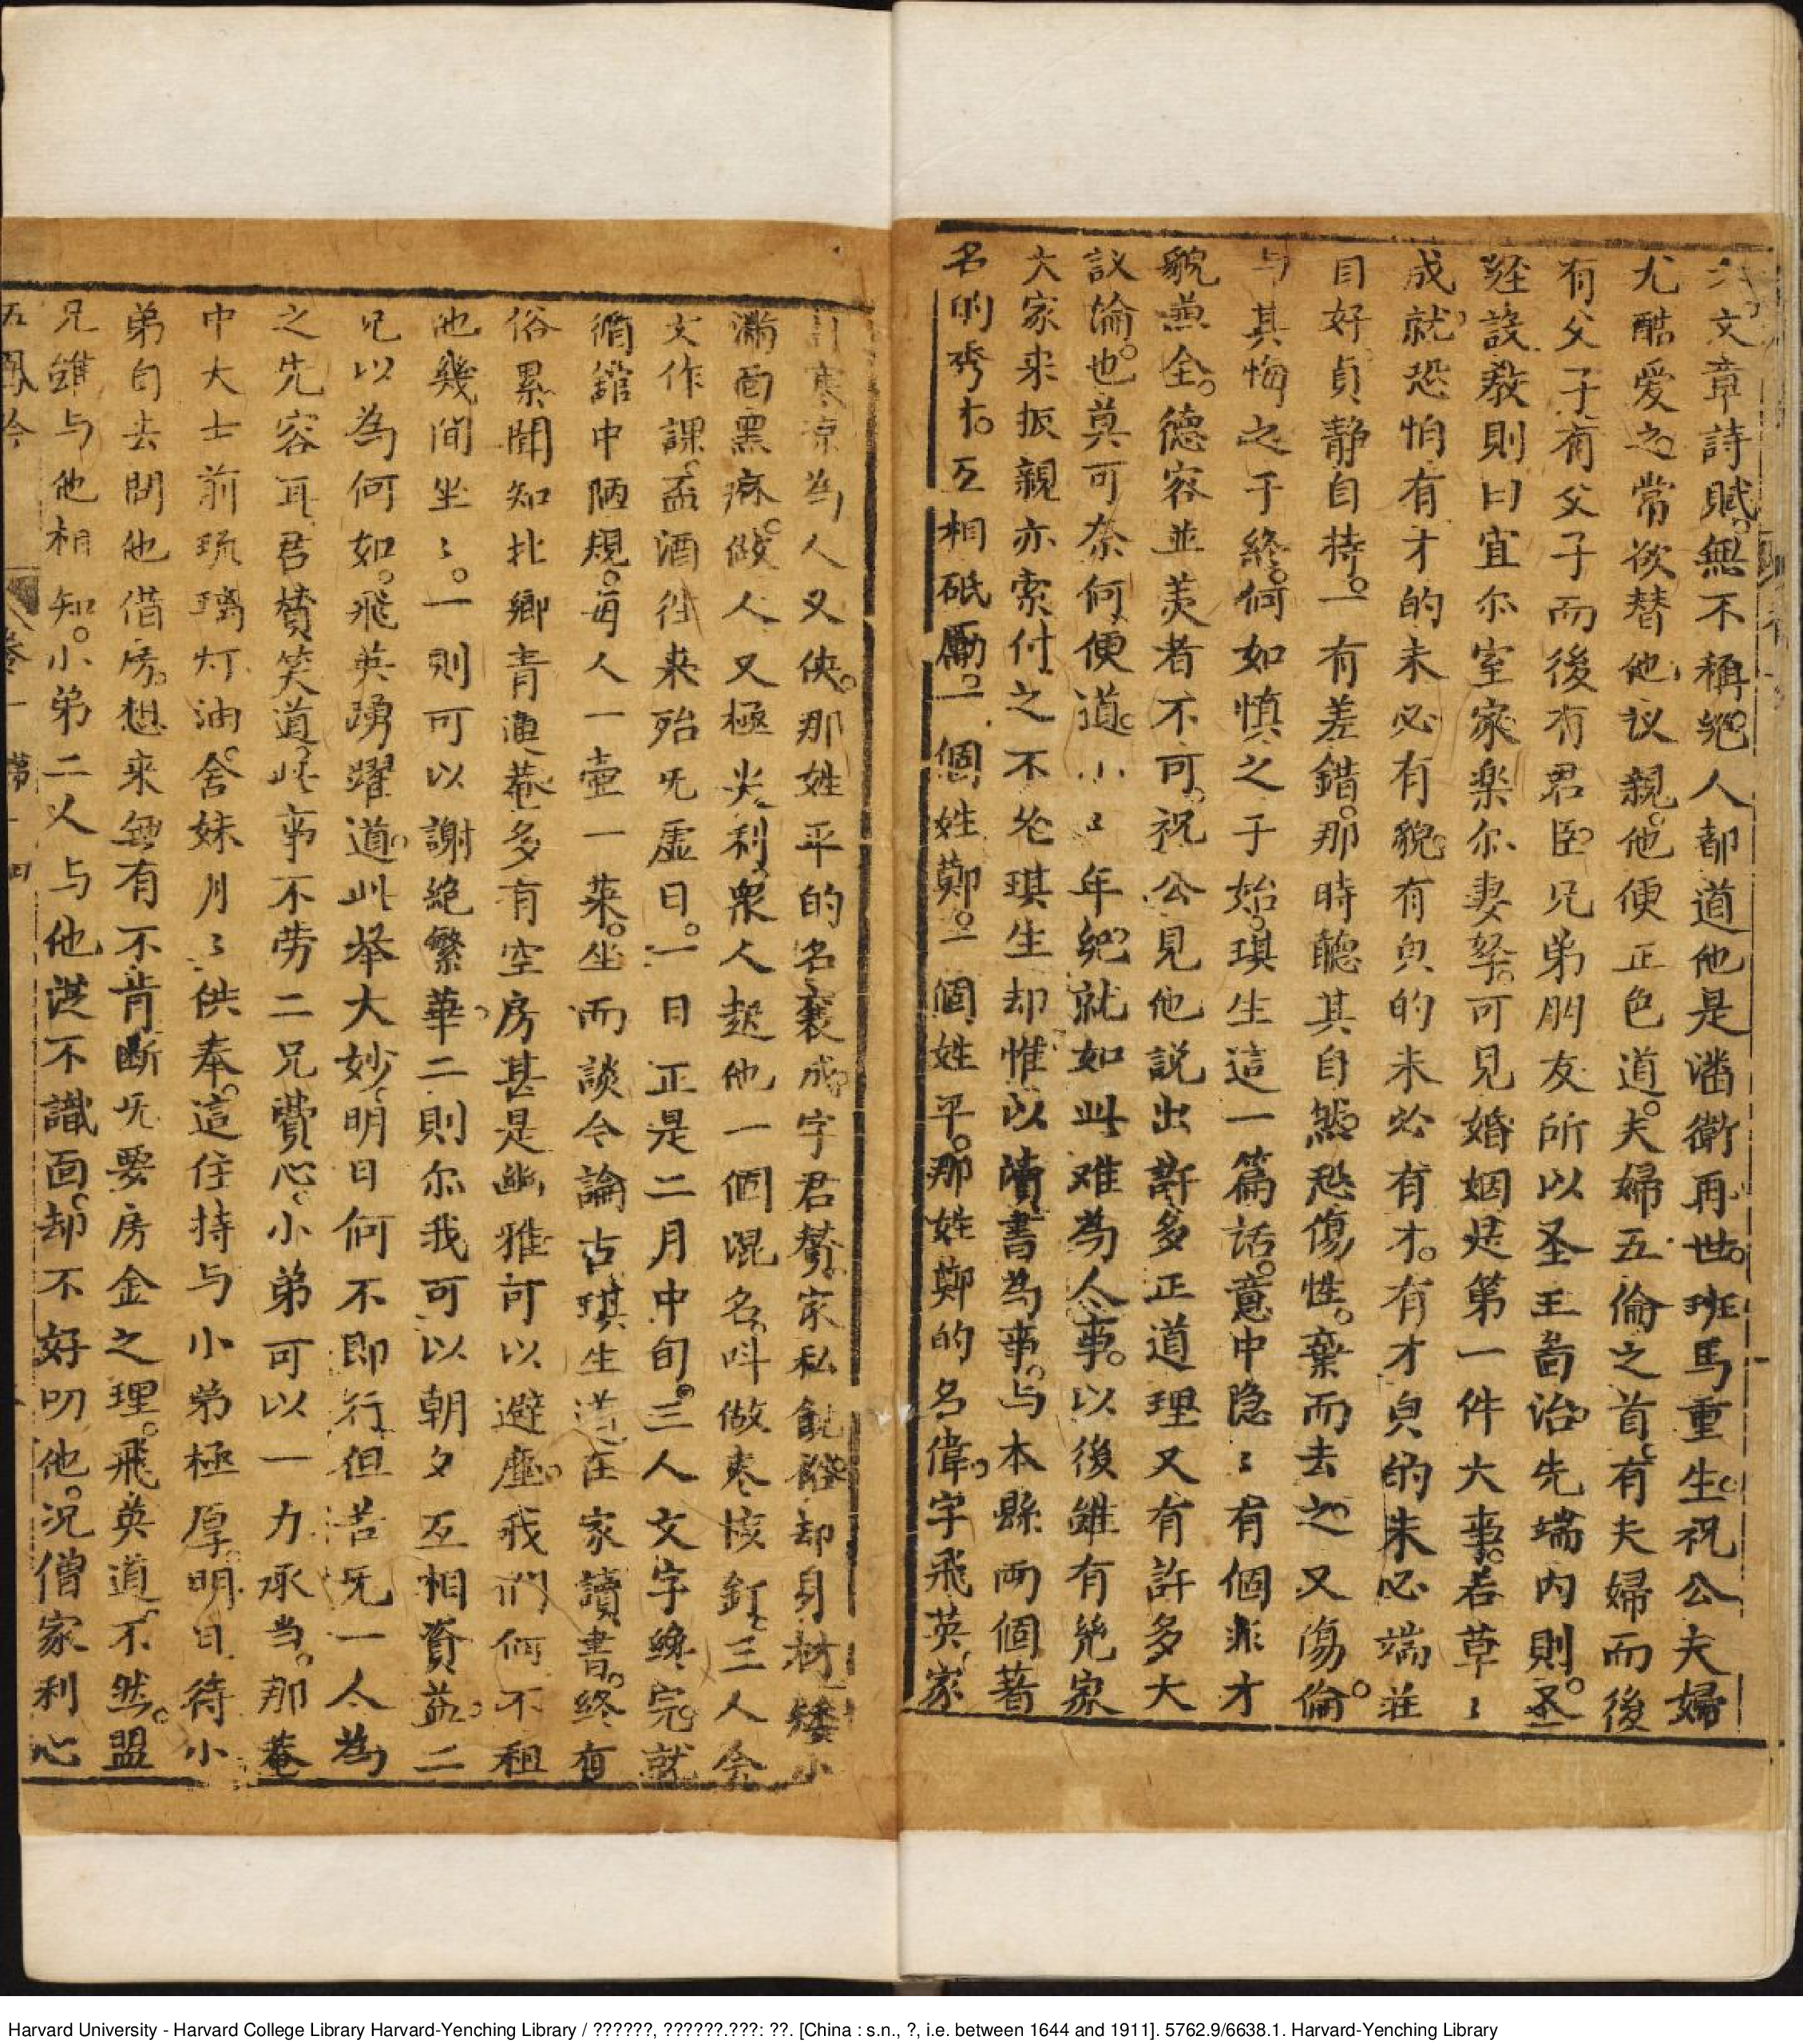 六文章詩賦。無不稱絕。人都道他是潘衛再世。班馬重生。祝公夫婦
尤酷爱之。常欲替他议親。他便正色道。夫婦五倫之首。有夫婦而後
有父子。有父子而後有君臣。兄弟朋友所以圣王啚治。先端内則。圣
経設教則曰宜尔室家。楽尔妻孥。可見婚姻是第一件大事。若草〻
成就。恐怕有才的未必有貌。有貌的未必有才。有才貌的未必端莊
目好貞静自持。一有差錯。那時聽其自然。恐傷性。棄而去之。又傷倫。
与其悔之于終。何如慎之于始。琪生這一篇話。意中隐〻有個非才
貌兼全。德容並羙者不可。祝公見他説出許多正道理。又有許多大
議論。也莫可奈何。便道。小〻年紀。就如此难為人事。以後雖有幾家
大家来扳親。亦索付之不论。琪生却惟以讀書為事。与本縣両個著
名的秀才。互相砥勵。一個姓鄭。一個姓平。那姓鄭的名偉。字飛英。家
計寒凉。為人又侠。那姓平的名襄成。字君贊。家私飽。却身材矮小
滿面黑麻。做人又極尖利。衆人起他一個混名。叫做枣核釘。三人会
文作課。盃酒往来。殆旡虚日。一日正是二月中旬。三人文字纔完。就
循舘中陋規。每人一壺一菜。坐而談今論古。琪生道。在家讀書。終有
俗累。聞知北鄉青蓮菴多有空房。甚是幽雅。可以避塵。我們何不租
他幾間坐〻。一則可以謝絶繁華。二則尔我可以朝夕互相資益。二
兄以為何如。飛英踴躍道。此举大妙。明日何不即行。但苦旡一人為
之先容耳。君贊笑道。此事不劳二兄費心。小弟可以一力承当。那菴
中大士前琉璃灯油。舍妹月〻供奉。這住持与小弟極厚。明日待小
弟自去問他借房。想来無有不肯。断旡要房金之理。飛英道。不然。盟
兄雖与他相知。小弟二人与他従不識面。却不好叨他。况僧家利心
五鳳吟
卷一
第一
四
Harvard University - Harvard College Library Harvard-Yenching Library / ??????, ??????.???: ??. [China : s.n., ?, i.e. between 1644 and 1911]. 5762.9/6638.1. Harvard-Yenching Library